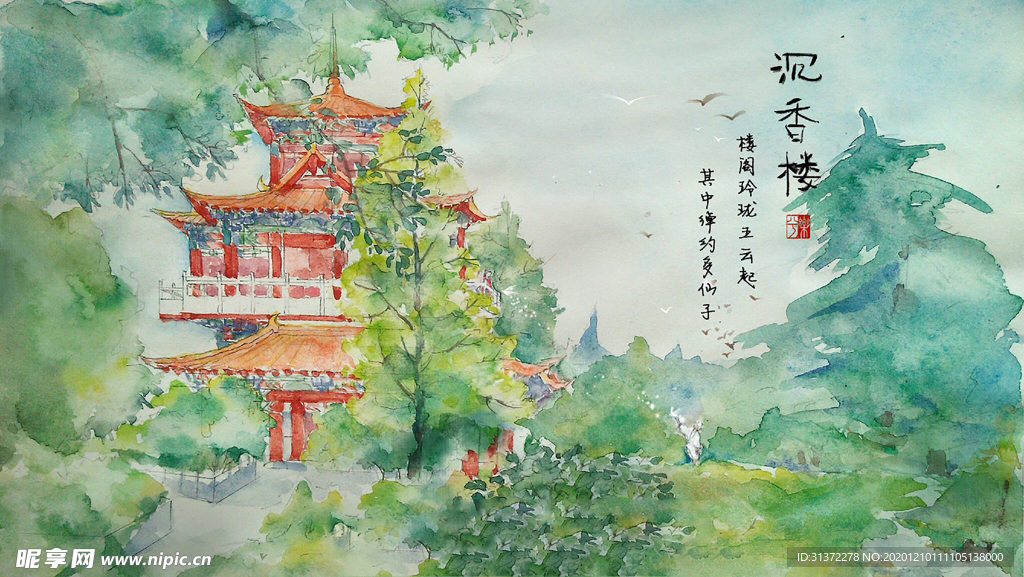 沉香楼
楼阁玲珑五云起
其中绰约多仙子
昵享网 www.nipic.cn
ID:31372278 NO:20201210111105138000